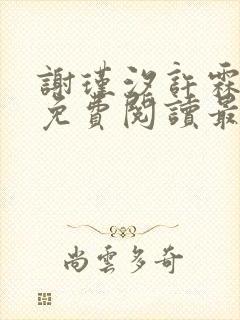 謝瑾汐許霖
免費閱讀最
尚雲多奇